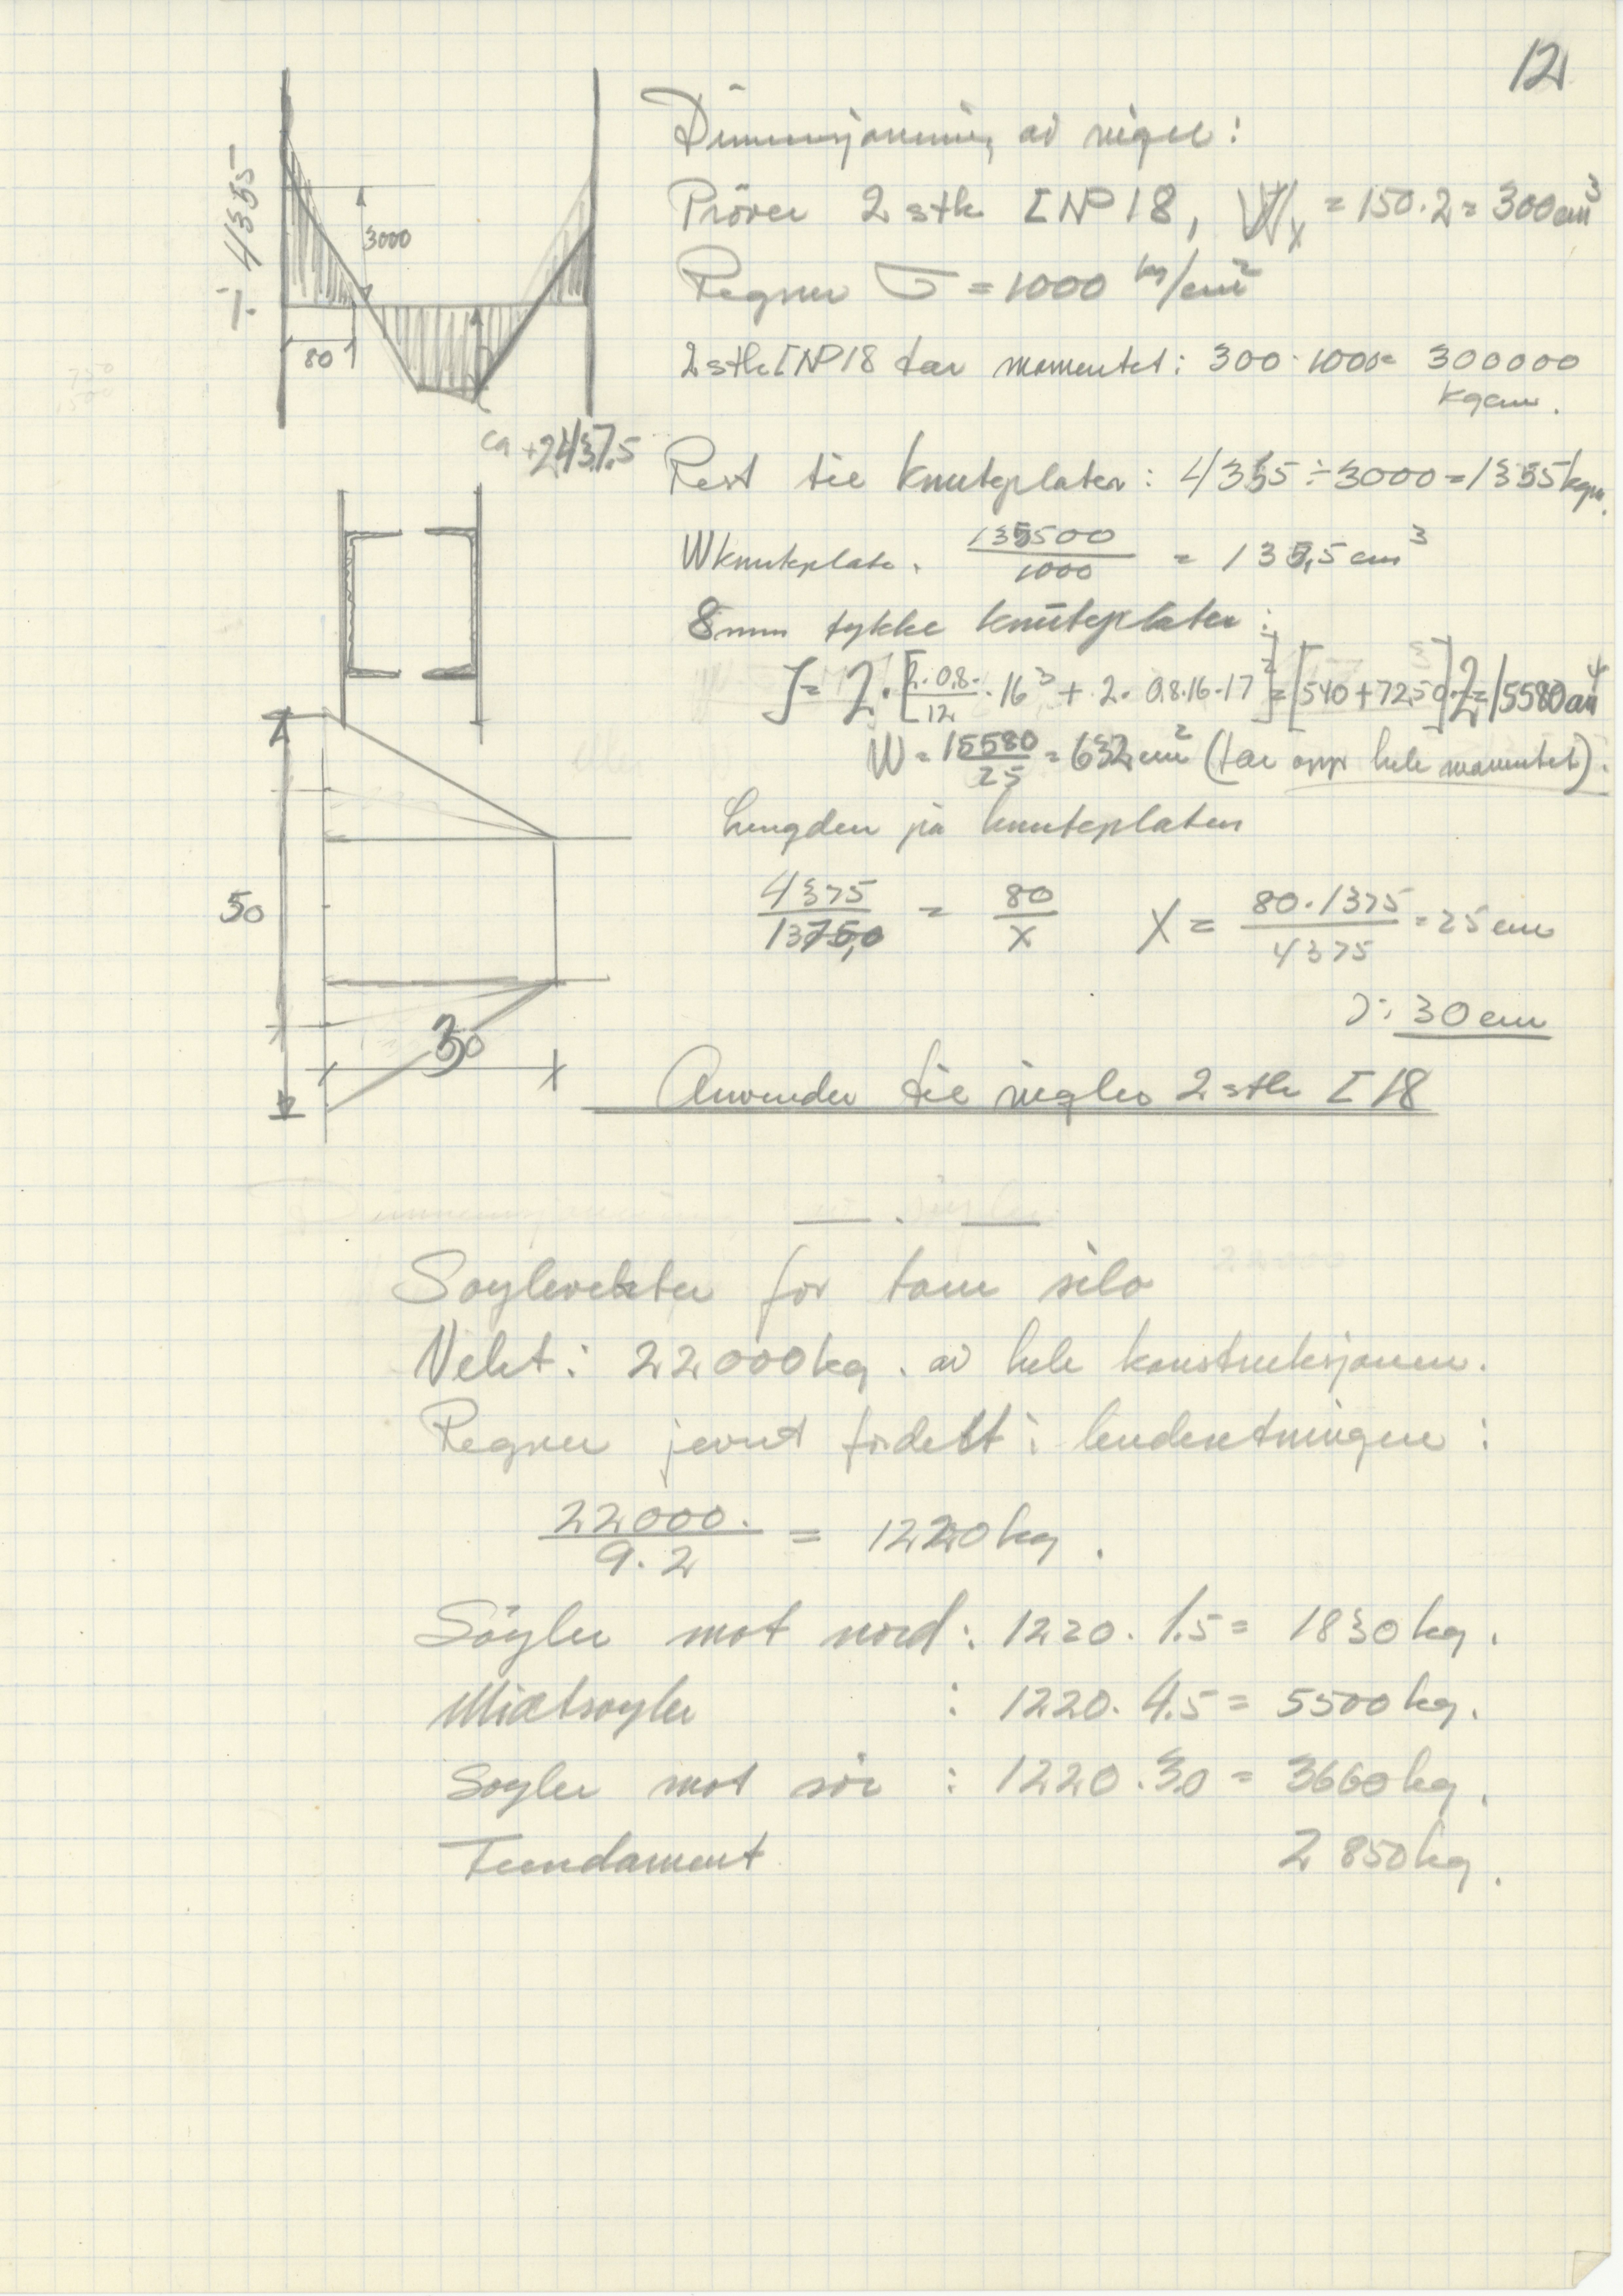 12
Dimensjonering av rigel:
Pröver 2 stk [ NP 18, Wx = 150·2 = 300 cm³
Regner σ = 1000 kg/cm²
2 stk [ NP 18 tar momentet: 300·1000 = 300000
kgcm.
Rest til knuteplater: 4355 ÷ 3000 = 1355 kgm.
W knuteplate. 135500/1000 = 135,5 cm³
8mm tykke knuteplater:
J = 2·[2·0,8·/12 ·16³ + 2·0,8·16·17²] = [540+7250]2 = 15580 cm⁴
W = 15580/25 = 632 cm² (tar opp hele momentet).
Lengden på knuteplaten
4375/1375,0 = 80/x X = 80·1375/4375 = 25 cm
ɔ: 30 cm
Anvender til rigler 2 stk [ 18
÷ 4355
3000
80
ca +2437.5
50
30
Søylevekter for tom silo
Vekt: 22000 kg. av hele konstruksjonen.
Regner jevnt fordelt i lenderetningen:
22000./9·2 = 1220 kg.
Söyler mot nord: 1220· 1.5 = 1830 kg.
Midtsøyler : 1220· 4.5 = 5500 kg.
Søyler mot sör : 1220 · 3.0 = 3660 kg.
Fundament 2850 kg.